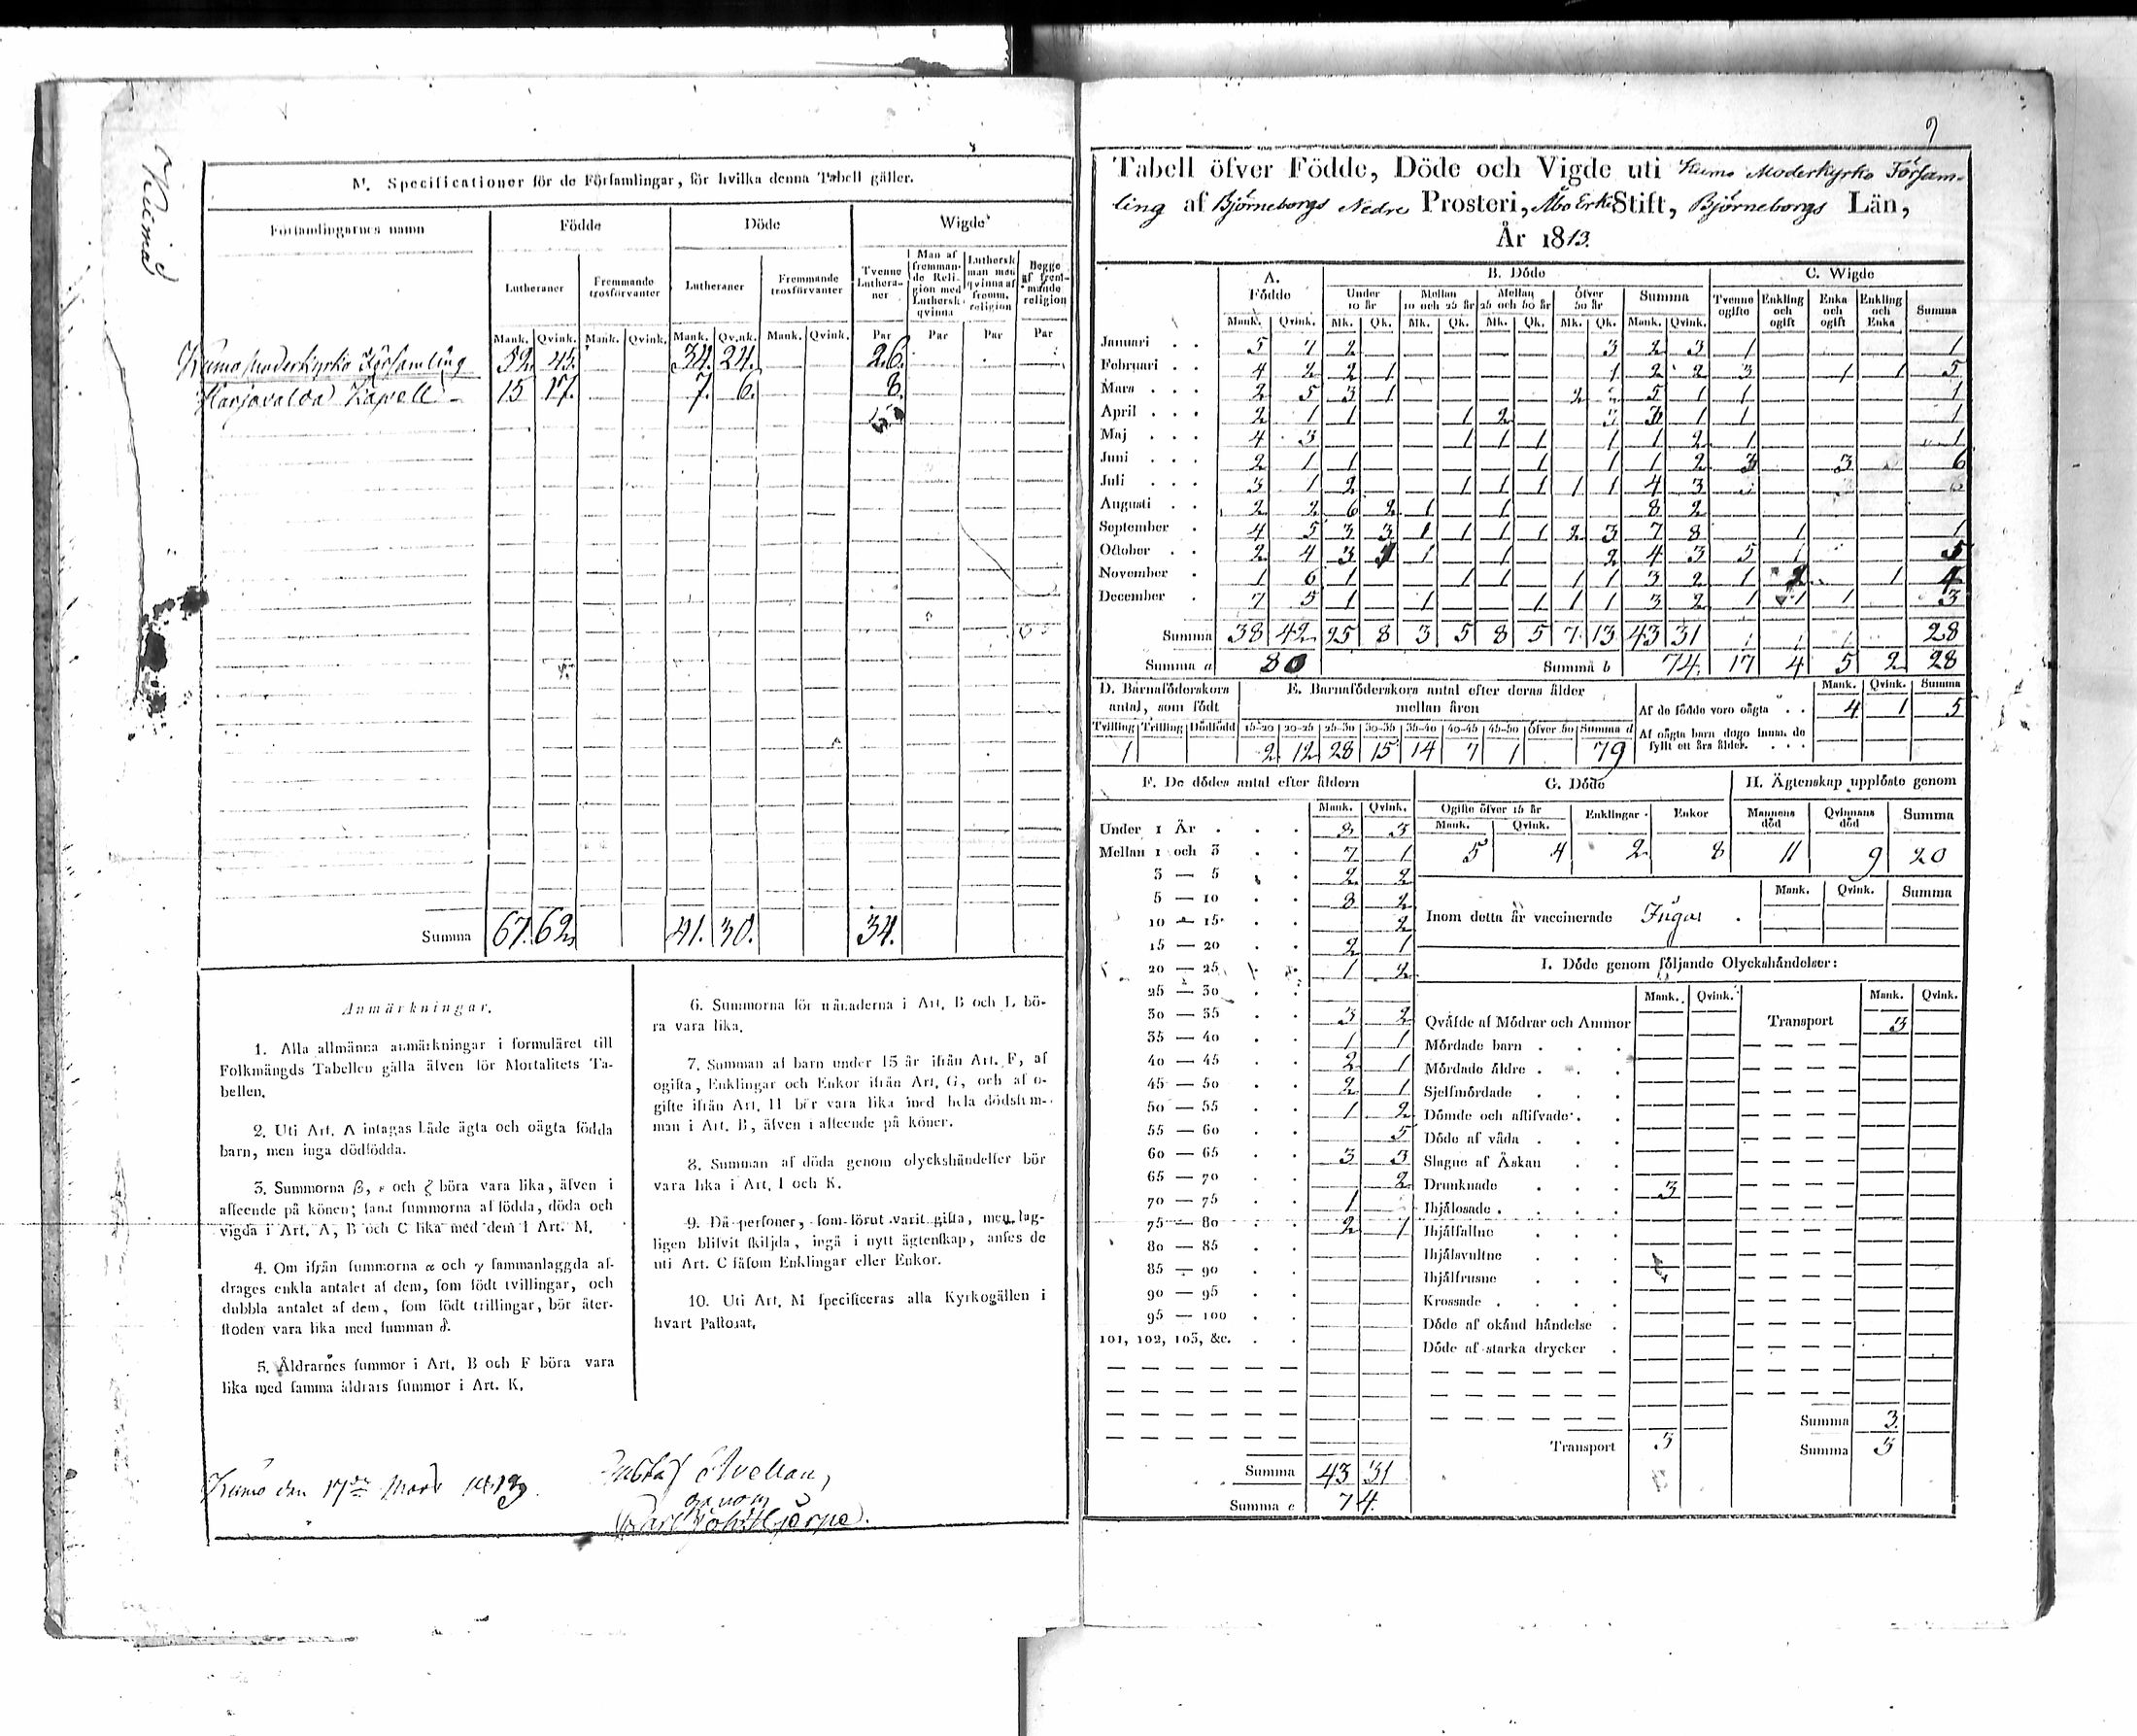 Kumo
M. Specificationer för de Församlingar, för hvilka denna Tabell gäller.
Församlingarnes namn Födde Döde Wigde
Lutheraner Fremmande trosförvanter Lutheraner Fremmande trosförvanter Tvenne Lutheraner Man af fremmande Religion med Luthersk qvinna Luthersk man med qvinna af fremm. religion Begge af fremmande religion
Mank. Qvink. Mank. Qvink. Mank. Qvink. Mank. Qvink. Par Par Par Par
Kumo Moderkyrko Församling 52. 45. 34. 24. 26.
Harjavalda Kapell 15 17. 7. 6. 8.
Summa 67. 62. 41. 30. 34.
Anmärkningar.
1. Alla allmänna anmärkningar i formuläret till
Folkmängds Tabellen gälla älven för Mortalitets Ta-
bellen.
2. Uti Art. A intagas både ägta och oägta födda
barn, men inga dödfödda.
3. Summorna β, ε och ζ böra vara lika, äfven i
afseende på könen; samt summorna af födda, döda och
vigda i Art. A, B och C lika med dem i Art. M.
4. Om ifrån summorna α och γ sammanlaggda af-
drages enkla antalet af dem, som födt tvillingar, och
dubbla antalet af dem, som födt trillingar, bör åter-
stoden vara lika med summan δ.
5. Åldrarnes summor i Art. B och F böra vara
lika med samma åldrars summor i Art. K.
6. Summorna för månaderna i Art. B och L bö-
ra vara lika.
7. Summan af barn under 15 år ifrån Art. F, af
ogifta, Enklingar och Enkor ifrån Art. G, och af o-
gifte ifrån Art. H bör vara lika med hela dödssum-
man i Art. B, äfven i afseende på könen.
8. Summan af döda genom olyckshändelser bör
vara lika i Art. I och K.
9. Då personer, som förut varit gifta, men lag-
ligen blifvit skiljda, ingå i nytt ägtenskap, anses de
uti Art. C såsom Enklingar eller Enkor.
10. Uti Art. M specificeras alla Kyrkogällen i
hvart Pastorat.
Kumo den 17de Mars
Gustaf Avellan,
genom
Carl Joh: Hjerpe.
Tabell öfver Födde, Döde och Vigde uti Kumo Moderkyrko Försam-
ling af Björneborgs Nedre Prosteri, Åbo Erke Stift, Björneborgs Län,
År 1813.
A. Födde B. Döde C. Wigde
Under 10 år Mellan 10 och 25 år Mellan 25 och 50 år öfver 50 år Summa Tvenne ogifte Enkling och ogift Enka och ogift Enkling och Enka Summa
Mank. Qvink. Mk. Qk. Mk. Qk. Mk. Qk. Mk. Qk. Mank. Qvink.
Januari 5 7 2 3 2 3 1 1
Februari 4 2 2 1 1 2 2 3 1 1 5
Mars 2 5 3 1 2 5 1 1 1
April 2 1 1 1 2 3 1 1 1
Maj 4 3 1 1 1 1 1 2 1 1
Juni 2 1 1 1 1 1 2 3 3 6
Juli 3 1 2 1 1 1 1 1 4 3
Augusti 2 2 6 2 1 1 8 2
September 4 5 3 3 1 1 1 1 2 3 7 8 1 1
October 2 4 3 1 1 1 2 4 3 5 5
November 1 6 1 1 1 1 1 3 2 1 2 1 4
December 7 5 1 1 1 1 1 3 2 1 1 1 3
Summa 38 42 25 8 3 5 8 5 7 13 43 31 28
Summa a 80 Summa b 74. 17 4 5 2 28
D. Barnaföderskors antal, som födt E. Barnaföderskors antal efter deras ålder mellan åren Mank. Qvink. Summa
Tvilling Trilling Dödfödd 15-20 20-25 25-30 30-35 35-40 40-45 45-50 öfver 50 Summa d
1 2 12 28 15 14 7 1 79
Af de födde voro oägta 4 1 5
Af oägta barn dogo innan de fyllt ett års ålder.
F. De dödes antal efter åldern
Mank. Qvink.
Under 1 År 8 3
Mellan 1 och 3 7 1
3 — 5 2 2
5 — 10 8 2
10 — 15 2
15 — 20 2 1
20 — 25 1 2
25 — 30
30 — 35 3 2
35 — 40 1 1
40 — 45 2 1
45 — 50 2 1
50 — 55 1 2
55 — 60 5
60 — 65 3 3
65 — 70 2
70 — 75 1
75 — 80 2 1
80 — 85
85 — 90
90 — 95
95 — 100
101, 102, 103, &c.
Summa 43 31
Summa c 74.
G. Döde H. Ägtenskap upplöste genom
Ogifte öfver 15 år Enklingar Enkor Mannens död Qvinnans död Summa
Mank. Qvink.
5 4 2 8 11 9 20
Mank. Qvink. Summa
Inom detta år vaccinerade Ingas
I. Döde genom följande Olyckshändelser:
Mank. Qvink. Mank. Qvink.
Qväfde af Mödrar och Ammor Transport 3
Mördade barn
Mördade äldre
Sjelfmördade
Dömde och aflifvade
Döde af våda
Slagne af Åskan
Drunknade 3
Ihjälosade
Ihjälfallne
Ihjälsvultne
Ihjälfrusne
Krossade
Döde af okänd händelse
Döde af starka drycker
Summa 3.
Transport 3 Summa 3